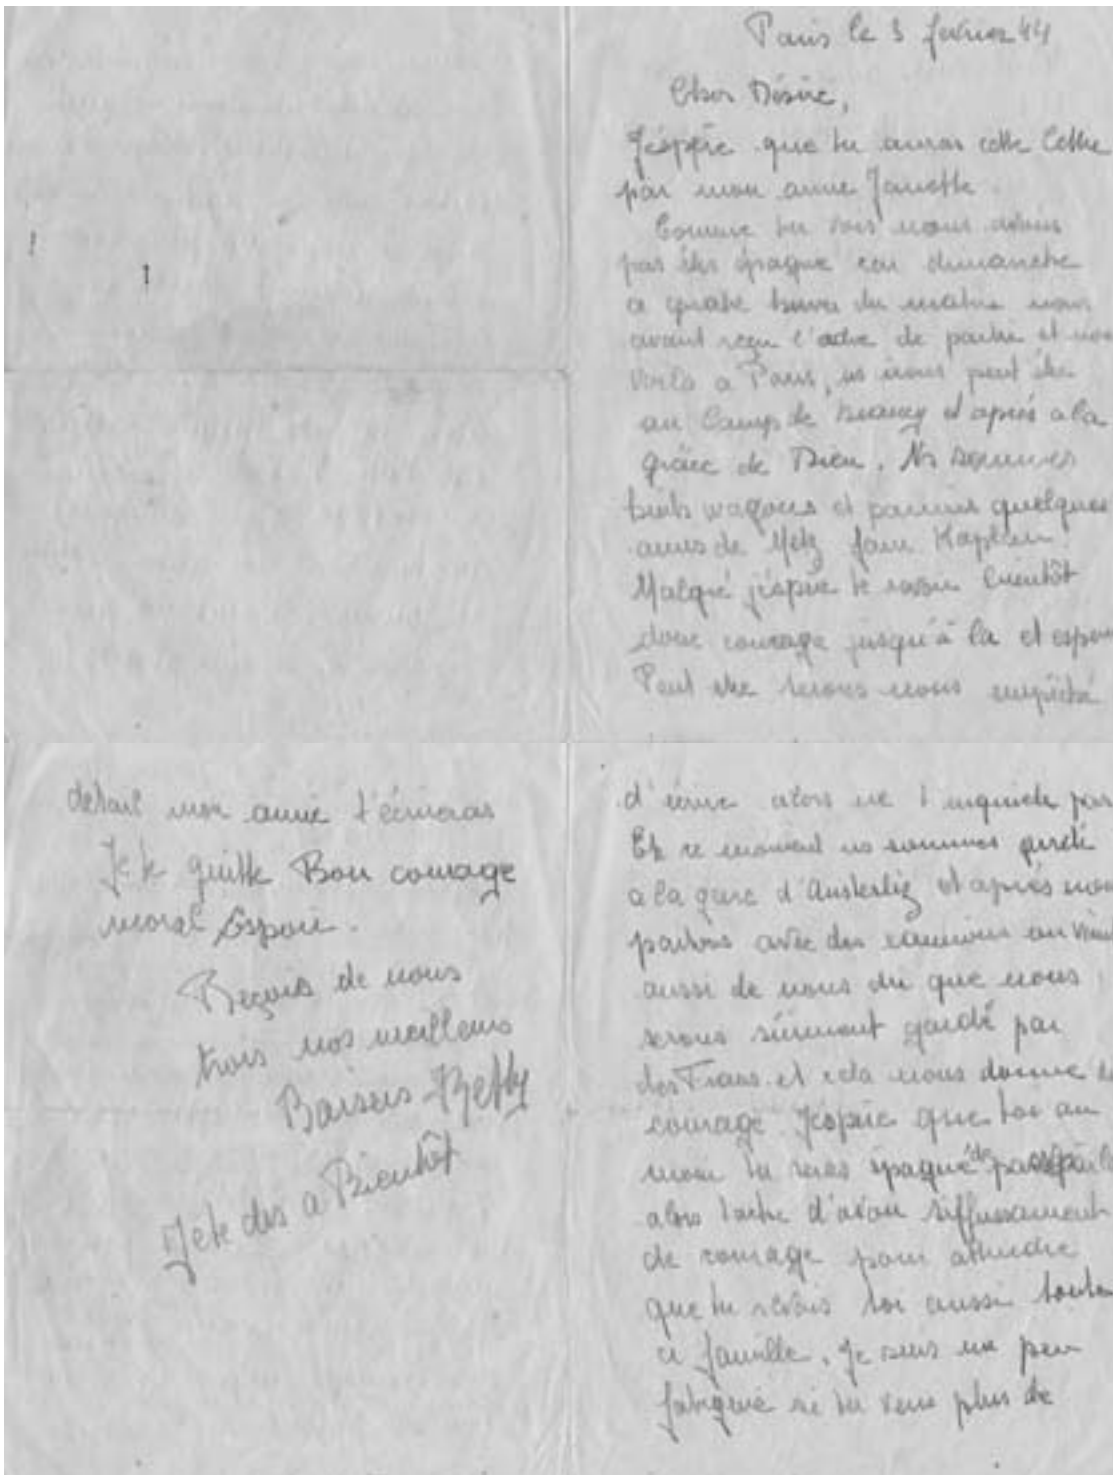 Paris le 3 fevrier 44
Cher Désiré,
J'éspère que tu auras cette lettre
par mon amie Janette.
Comme tu vois nous avons
pas éts épagne car dimanche
a quatre heure du matin nous
avont reçu l'odre de partir et nous
voila a Paris, peut être
au Camp de Drancy et après a la
grâce de Dieu. Ns sommes
wagons et parmis quelques
amis de Metz fam Kaplan.
Malgré j'éspère te bientôt
donc courage jusqu'à la et espoir
Peut etre serons nous empéché
d'écrire alors ne t'inquiete pas
En ce moment ns sommes
a la gare d'Austerliz et après nous
partons avec des camions on vient
aussi de nous dir que nous
serons sûrment gardé par
des Frans. et cela nous donne
courage. J'éspère que toi au
moin tu seras épagné de
alors tache d'avoir siffusament
de courage pour attendre
que tu revois toi aussi toute
famille. Je suis un peu
fatiguée si tu veux plus de
détail mon amie t'écrieras
Je te quitte Bon courage
moral Espoir.
Reçois de nous
trois nos meilleurs
Baisers Betty
Je te dis a Bientôt